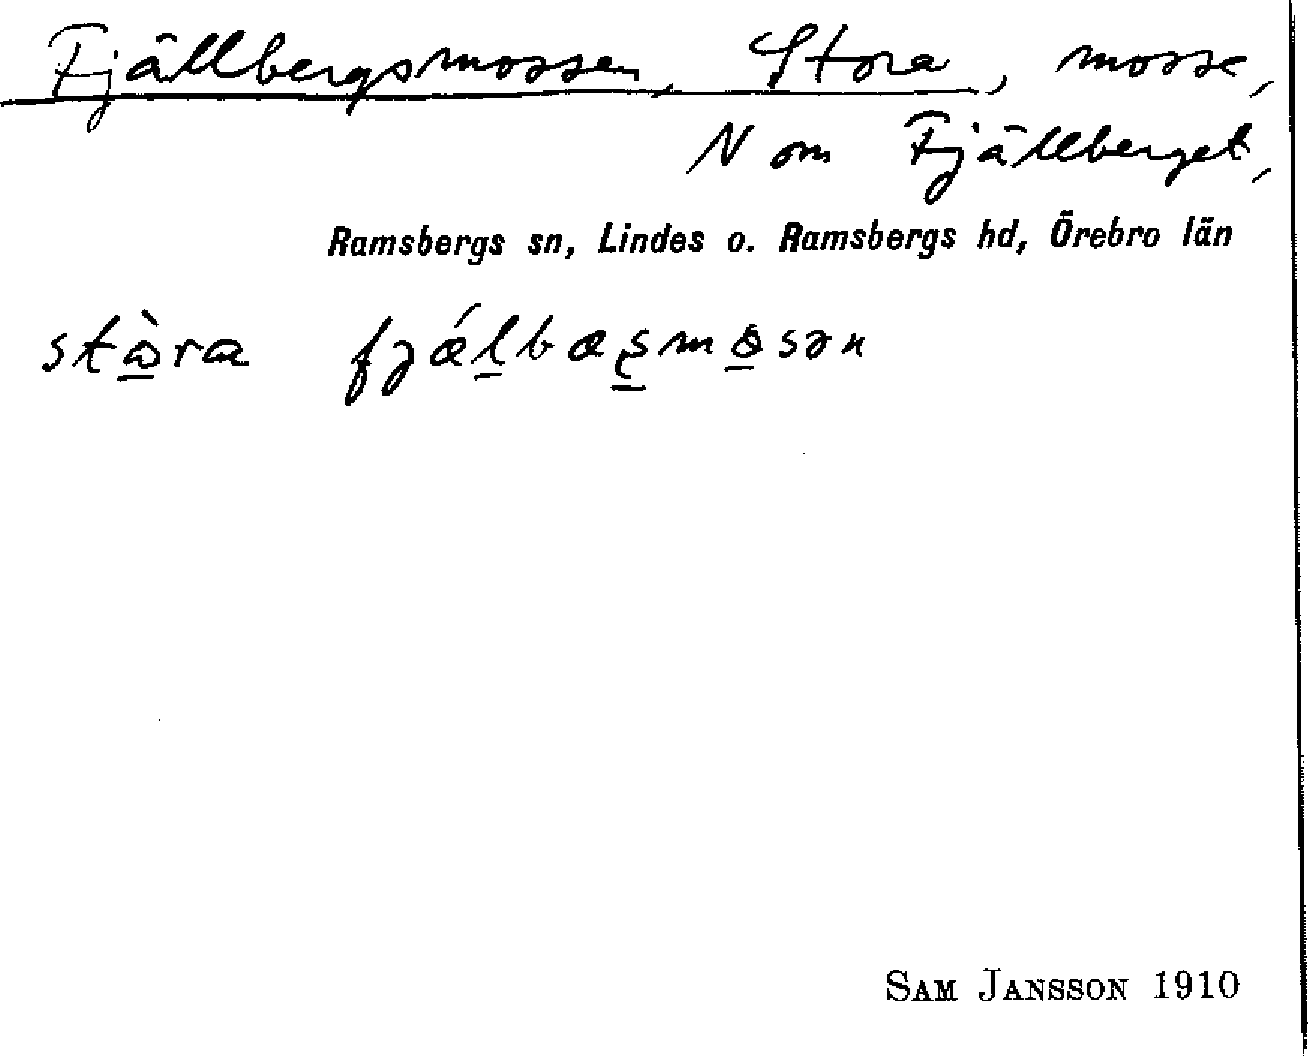 Fjällbergsmossen, Stora, mosse,
N om Fjällberget,
Ramsbergs sn, Lindes o. Ramsbergs hd, Örebro län
SAM JANSSON 1910